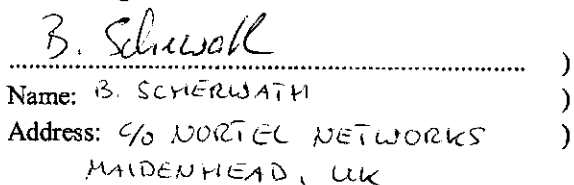 B. Scherwath )
Name: B. SCHERWATH )
Address: c/o NORTEL NETWORKS )
MAIDENHEAD, UK